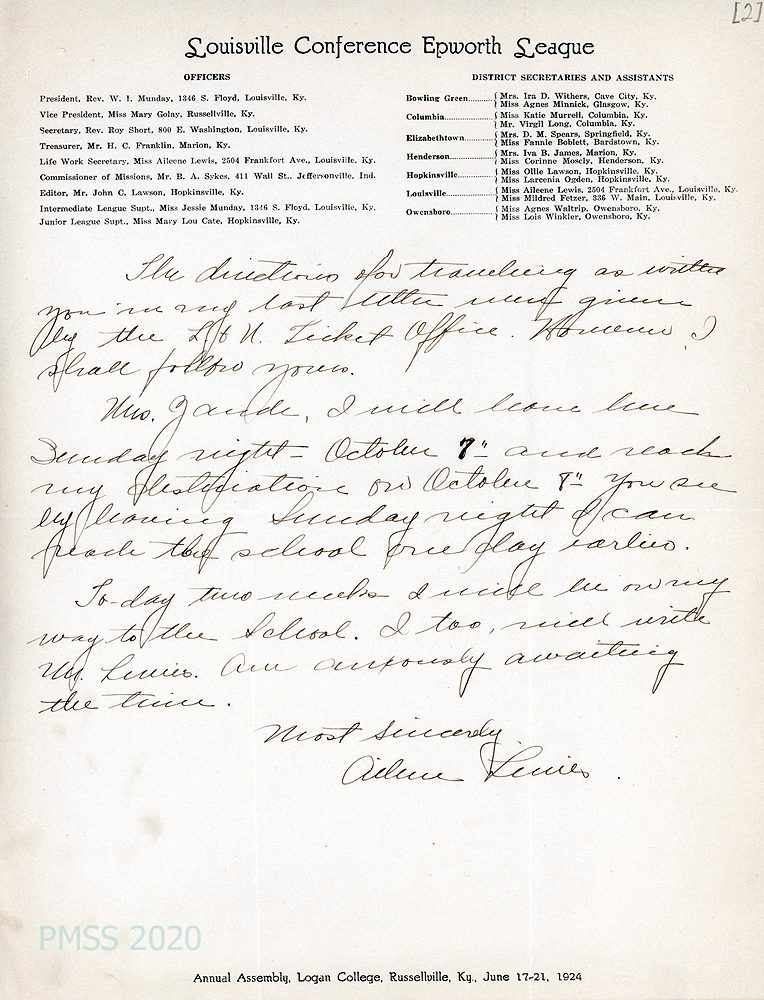 [2]
Louisville Conference Epworth League
OFFICERS
President, Rev. W. I. Munday, 1346 S. Floyd, Louisville, Ky.
Vice President, Miss Mary Golay, Russellville, Ky.
Secretary, Rev. Roy Short, 800 E. Washington, Louisville, Ky.
Treasurer, Mr. H. C. Franklin, Marion, Ky.
Life Work Secretary, Miss Aileene Lewis, 2504 Frankfort Ave., Louisville, Ky.
Commissioner of Missions, Mr. B. A. Sykes, 411 Wall St., Jeffersonville, Ind.
Editor, Mr. John C. Lawson, Hopkinsville, Ky.
Intermediate League Supt., Miss Jessie Munday, 1346 S. Floyd, Louisville, Ky.
Junior League Supt., Miss Mary Lou Cate, Hopkinsville, Ky.
DISTRICT SECRETARIES AND ASSISTANTS
Bowling Green { Mrs. Ira D. Withers, Cave City, Ky.
Miss Agnes Minnick, Glasgow, Ky.
Columbia { Miss Katie Murrell, Columbia, Ky.
Mr. Virgil Long, Columbia, Ky.
Elizabethtown { Mrs. D. M. Spears, Springfield, Ky.
Miss Fannie Boblett, Bardstown, Ky.
Henderson { Mrs. Iva B. James, Marion, Ky.
Miss Corinne Mosely, Henderson, Ky.
Hopkinsville { Miss Ollie Lawson, Hopkinsville, Ky.
Miss Larcenia Ogden, Hopkinsville, Ky.
Louisville { Miss Aileene Lewis, 2504 Frankfort Ave., Louisville, Ky.
Miss Mildred Fetzer, 336 W. Main, Louisville, Ky.
Owensboro { Miss Agnes Waltrip, Owensboro, Ky.
Miss Lois Winkler, Owensboro, Ky.
The directions for traveling as written
you in my last letter were given
by the L & N. Ticket Office. However, I
shall follow yours.
Mrs. Zande, I will leave here
Sunday night - October 7" and reach
my destination on October 8" You see
by leaving Sunday night I can
reach the school one day earlier.
To-day two weeks I will be on my
way to the School. I too, will write
Mr. Lewis. Am anxiously awaiting
the time.
Most sincerely
Ailene Lewis.
PMSS 2020
Annual Assembly, Logan College, Russellville, Ky., June 17-21, 1924